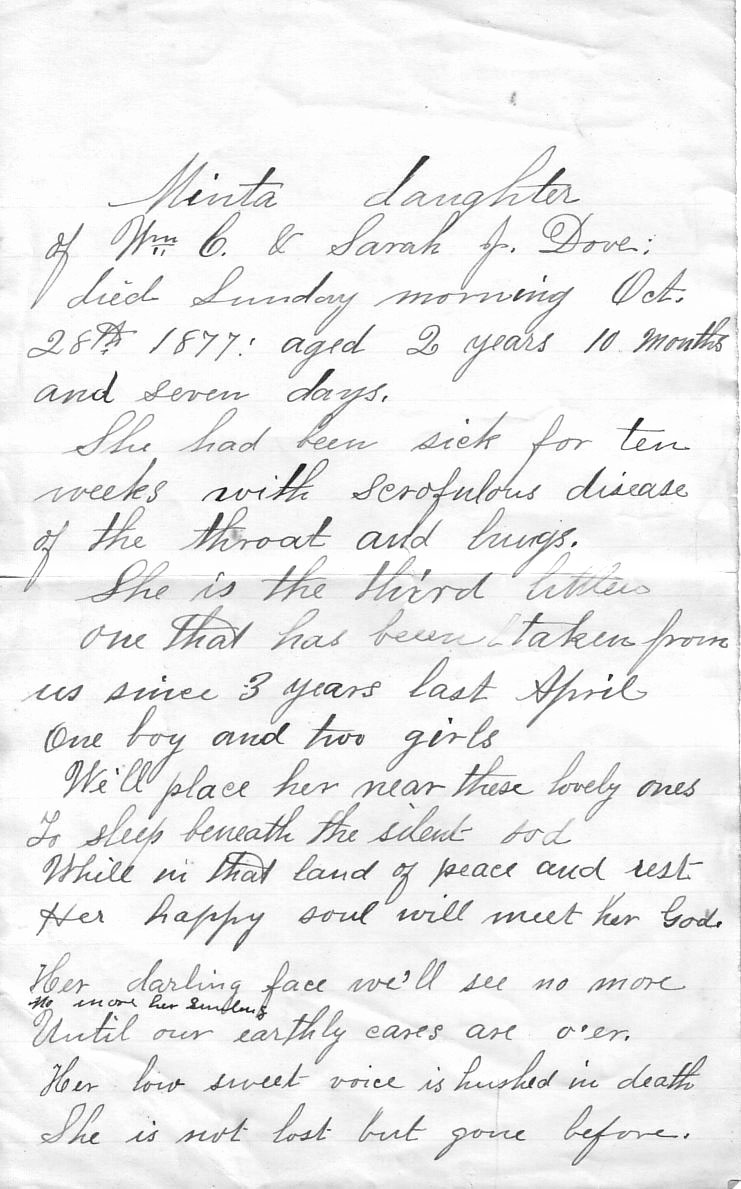 Minta daughter
of Wm C. & Sarah J. Dove:
died Sunday morning Oct.
28th 1877: aged 2 years 10 months
and seven days.
She had been sick for ten
weeks with scrofulous disease
of the throat and lungs.
She is the third little
one that has been taken from
us since 3 years last April
One boy and two girls
We'll place her near these lovely ones
To sleep beneath the silent sod
While in that land of peace and rest
Her happy soul will meet her God.
Her darling face we'll see no more
no more her
Until our earthly cares are o'er.
Her low sweet voice is hushed in death
She is not lost but gone before.